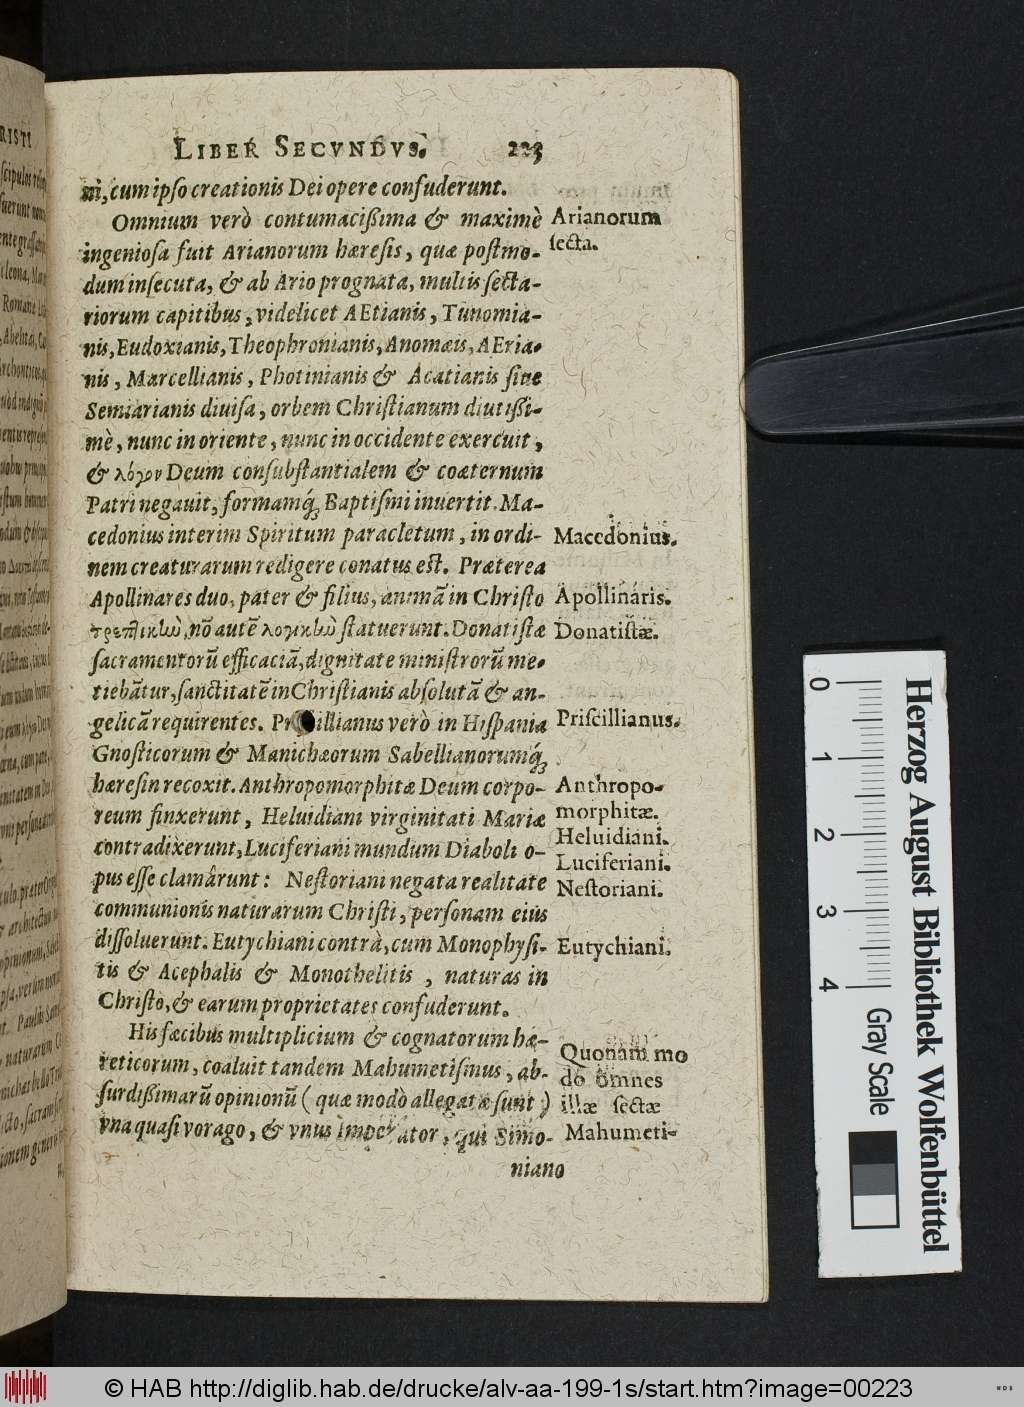 LIBER SECVNDVS. 223
ni, cum ipso creationis Dei opere confuderunt.
Omnium verò contumacißima & maximè
ingeniosa fuit Arianorum hæresis, quæ postmo-
dum insecuta, & ab Ario prognata, multis secta-
riorum capitibus, videlicet AEtianis, Tunomia-
nis, Eudoxianis, Theophronianis, Anomæis, AEria-
nis, Marcellianis, Photinianis & Acatianis siue
Semiarianis diuisa, orbem Christianum diutißi-
mè, nunc in oriente, nunc in occidente exercuit,
& λόγον Deum consubstantialem & coæternum
Patri negauit, formamq́; Baptismi inuertit. Ma-
cedonius interim Spiritum paracletum, in ordi-
nem creaturarum redigere conatus est. Præterea
Apollinares duo, pater & filius, animā in Christo
τρεπλικὼ, nō autē λογικὼ statuerunt. Donatistæ
sacramentorū efficaciā, dignitate ministrorū me-
tiebātur, sanctitatē in Christianis absolutā & an-
gelicā requirentes. Pr illianus verò in Hispania
Gnosticorum & Manichæorum Sabellianorumq́;
hæresin recoxit. Anthropomorphitæ Deum corpo-
reum finxerunt, Heluidiani virginitati Mariæ
contradixerunt, Luciferiani mundum Diaboli o-
pus esse clamârunt: Nestoriani negata realitate
communionis naturarum Christi, personam eius
dissoluerunt. Eutychiani contrà, cum Monophysi-
tis & Acephalis & Monothelitis, naturas in
Christo, & earum proprietates confuderunt.
His fæcibus multiplicium & cognatorum hæ-
reticorum, coaluit tandem Mahumetismus, ab-
surdißimarū opinionū (quæ modò allegatæ sunt)
vna quasi vorago, & vnus Imperator, qui Simo-
niano
Arianorum
secta.
Macedonius.
Apollinaris.
Donatistæ.
Priscillianus.
Anthropo-
morphitæ.
Heluidiani.
Luciferiani.
Nestoriani.
Eutychiani.
Quonam mo
do omnes
illæ sectæ
Mahumeti-
0 1 2 3 4
Herzog August Bibliothek Wolfenbüttel
Gray Scale
© HAB http://diglib.hab.de/drucke/alv-aa-199-1s/start.htm?image=00223